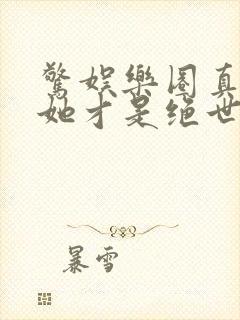 驚娛樂圈真
她才是绝世
暴雪